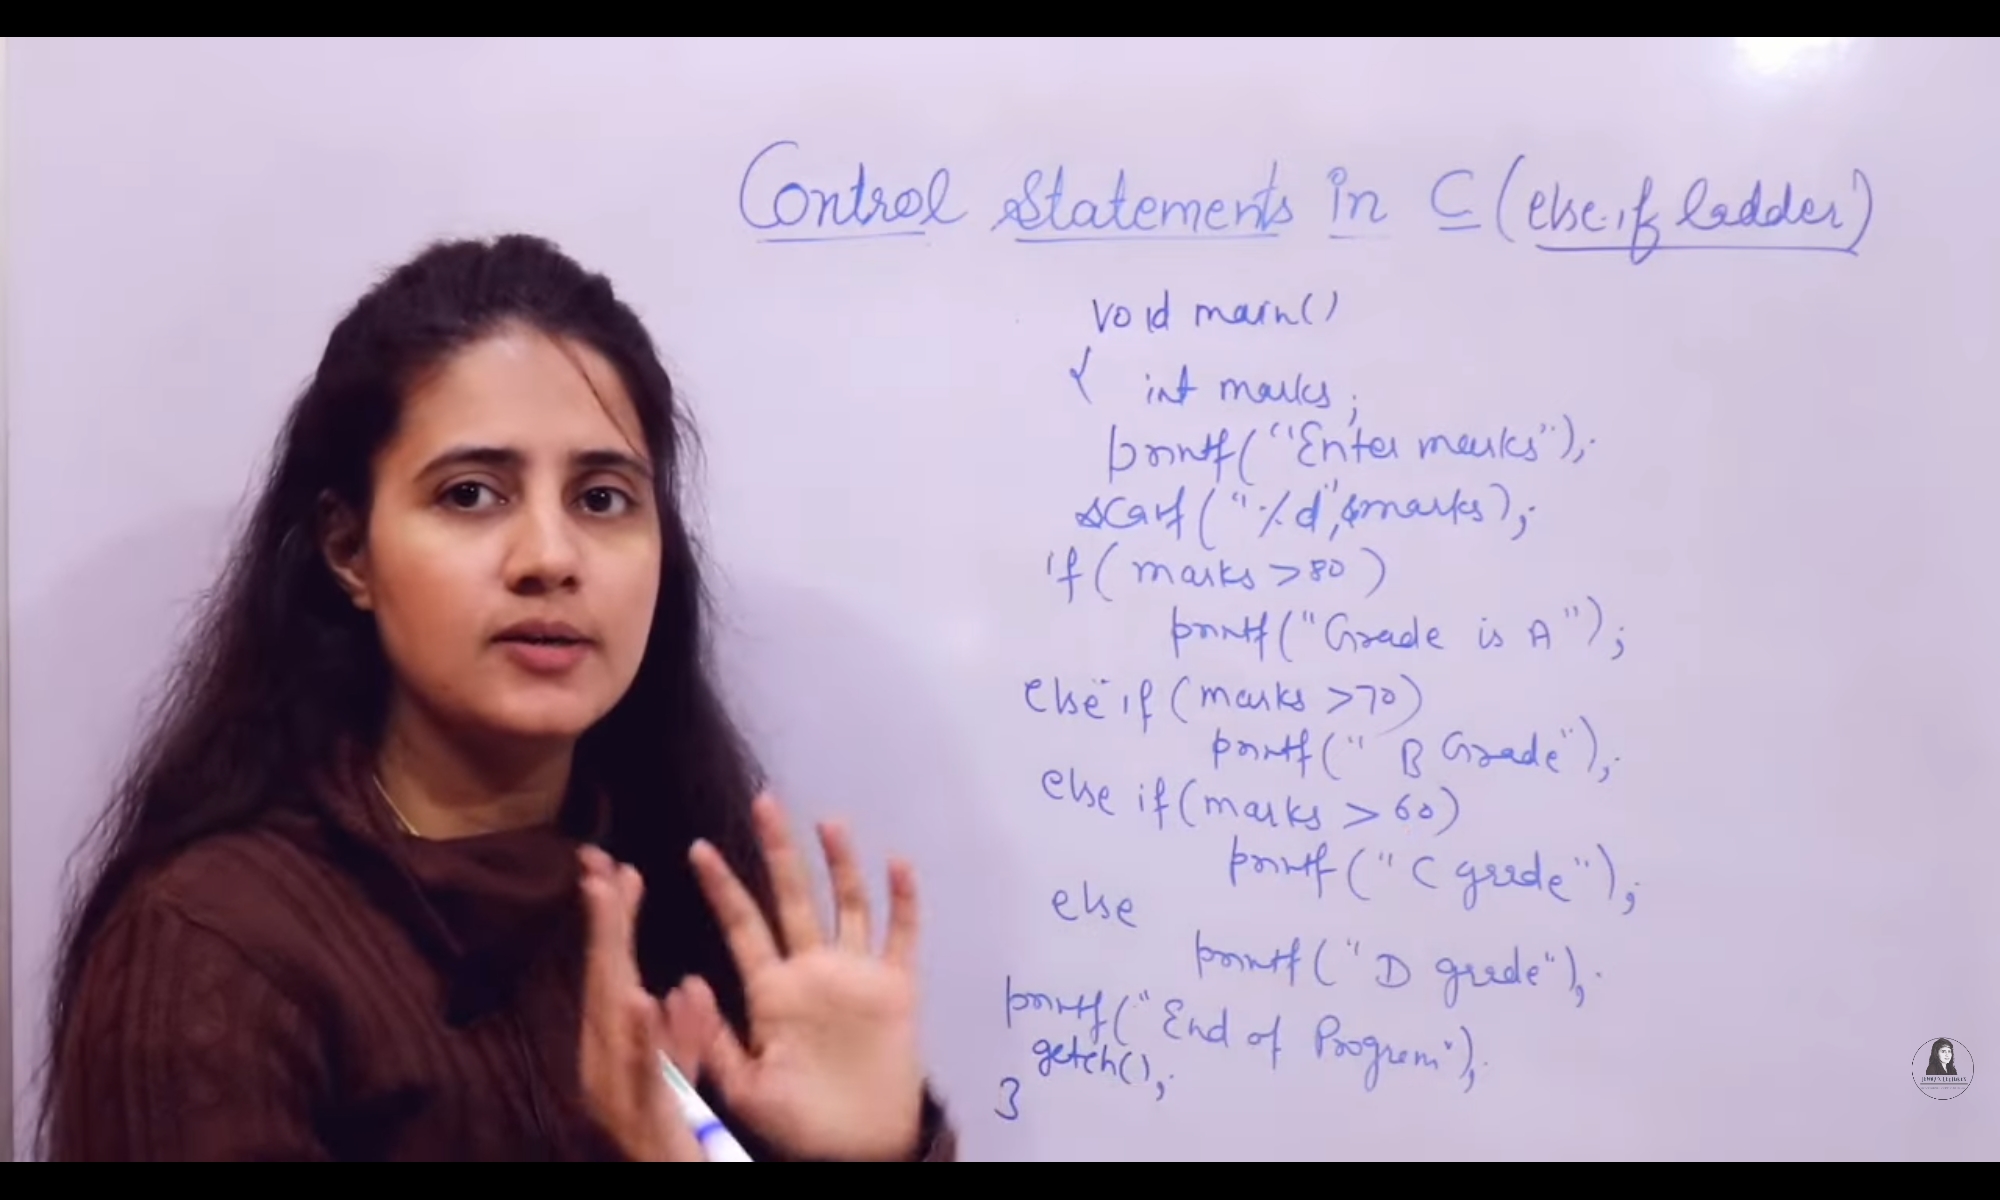 Control Statements in C (else if ladder)
void main()
{ int marks;
printf("Enter marks");
scanf("%d",&marks);
if(marks >80)
printf("Grade is A");
else if (marks >70)
printf(" B Grade");
else if(marks > 60)
printf("C grade");
else
printf("D grade");
printf("End of Program");
getch();
}